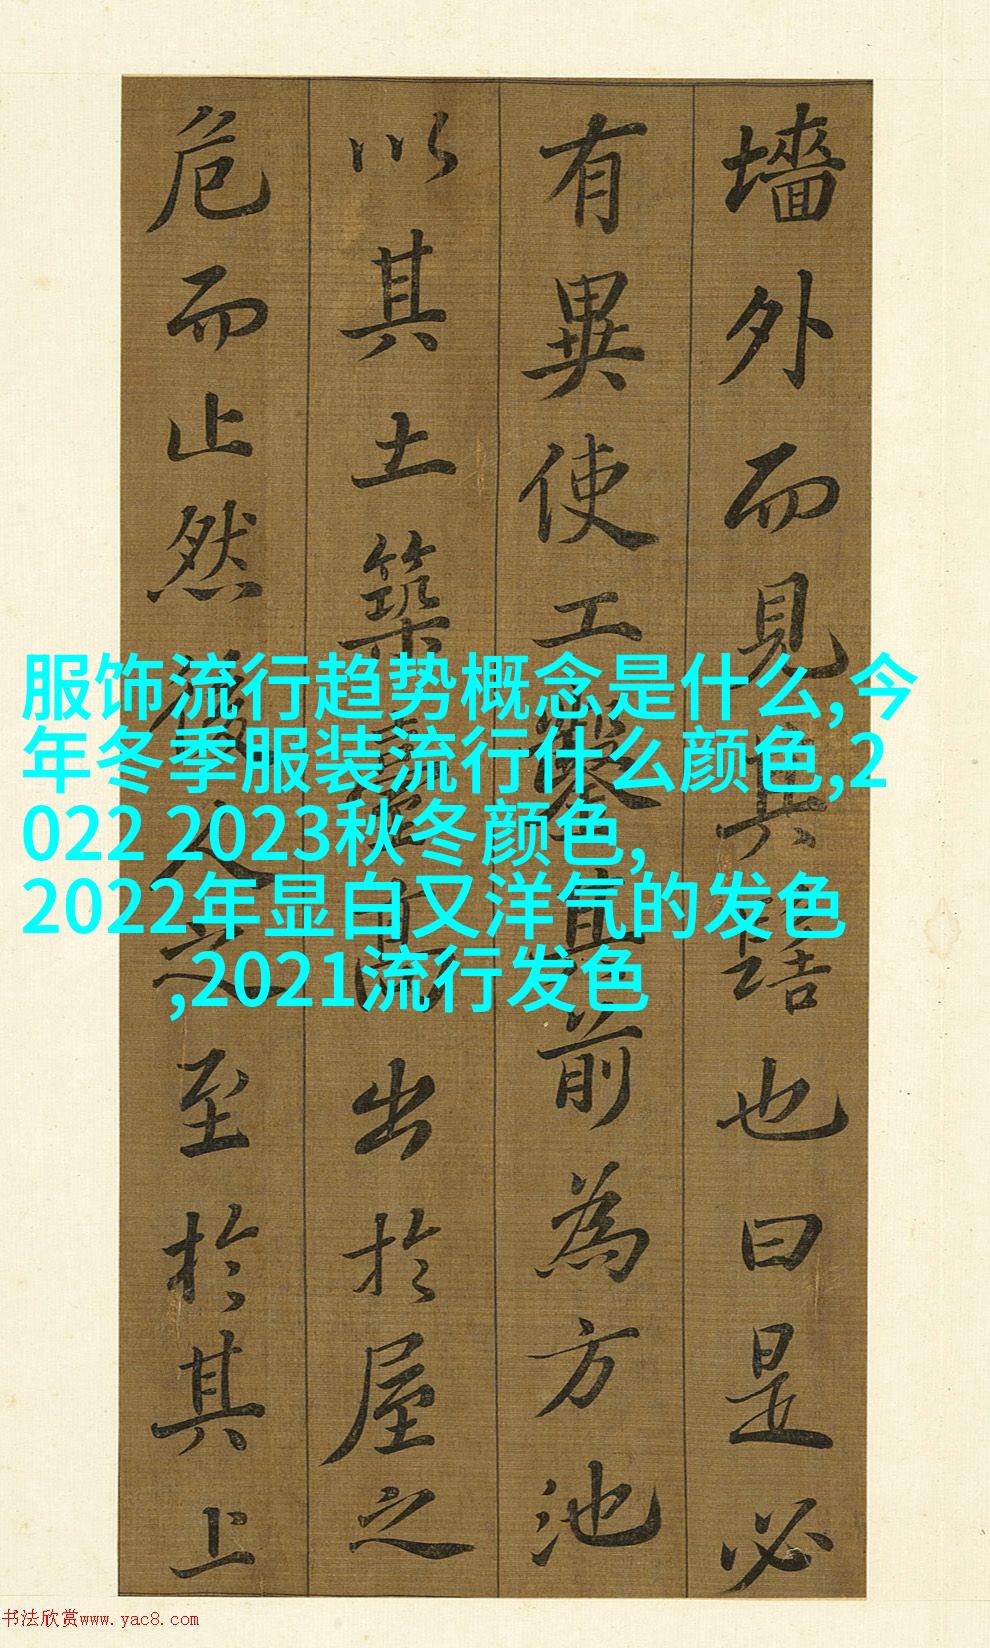 墻外而見其髻也曰是必
有異使工鑿其前為方池
以其土築臺高出於屋之
危而止然後人之至於其上
服饰流行趋势概念是什么,今
年冬季服装流行什么颜色,2
022 2023秋冬颜色,
2022年显白又洋气的发色
,2021流行发色
书法欣赏www.yac8.com